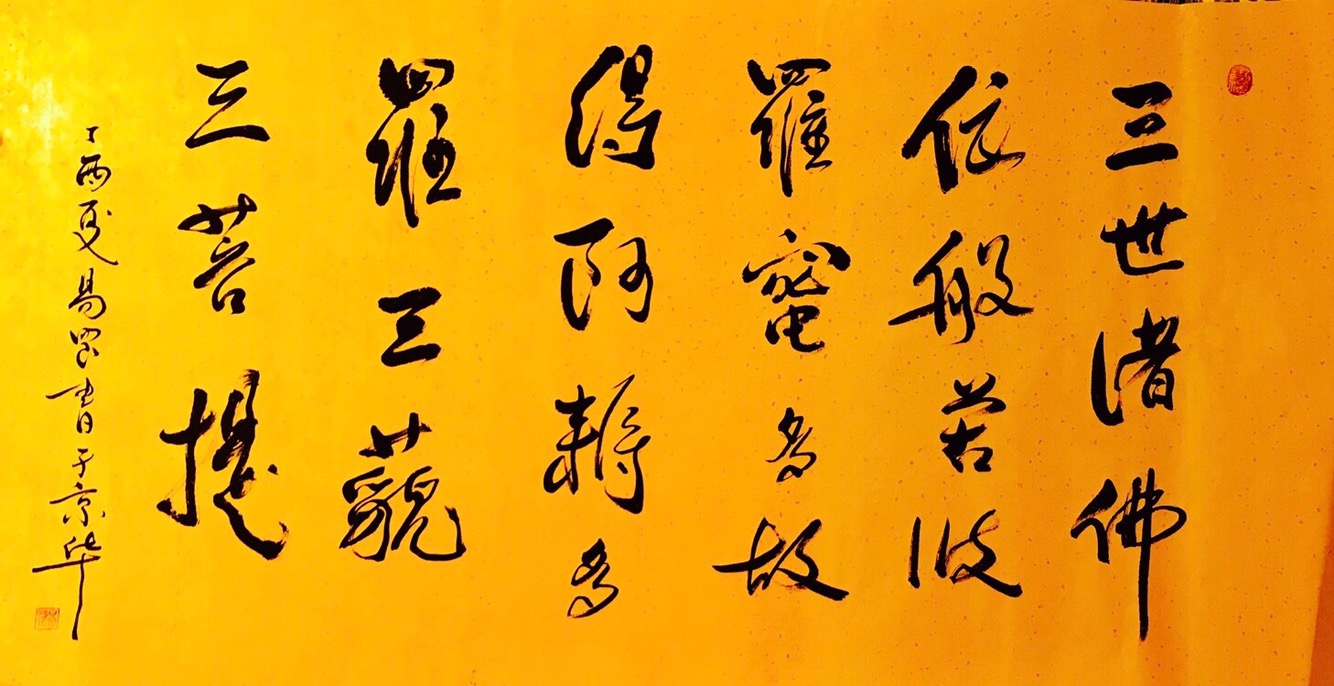 三世諸佛
依般若波
羅蜜多故
得阿耨多
羅三藐
三菩提
丁酉夏易書于京华